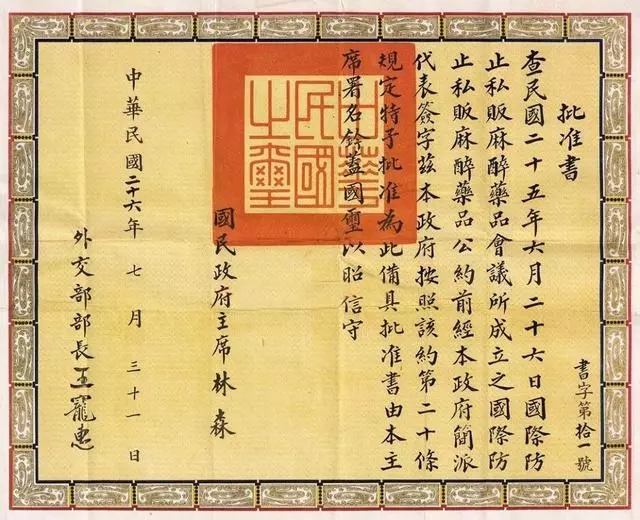 批准書
書字第拾一號
查民國二十五年六月二十六日國際防
止私販麻醉藥品會議所成立之國際防
止私販麻醉藥品公約前經本政府簡派
代表簽字茲本政府按照該約第二十條
規定特予批准為此備具批准書由本主
席署名鈐蓋國璽以昭信守
中華
民國
之璽
國民政府主席林森
中華民國二十六年七月三十一日
外交部部長王寵惠